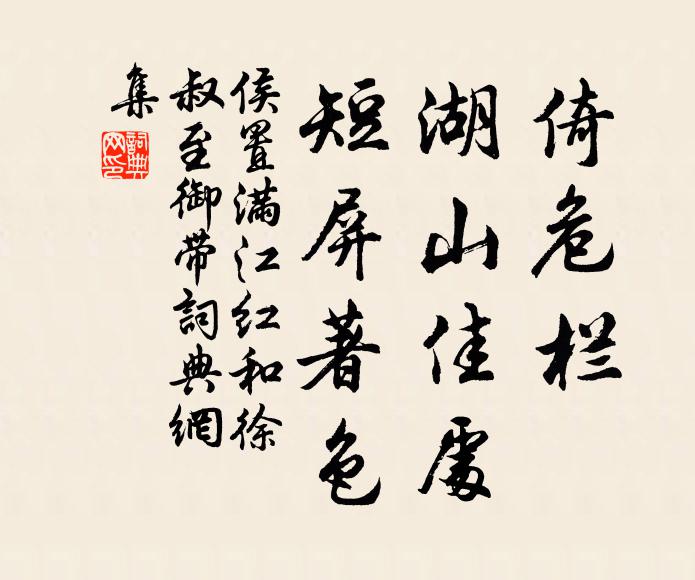 倚危栏
湖山佳處
短屏著色
侯置满江红和徐
叔至御带詞典網
集
詞典
网印